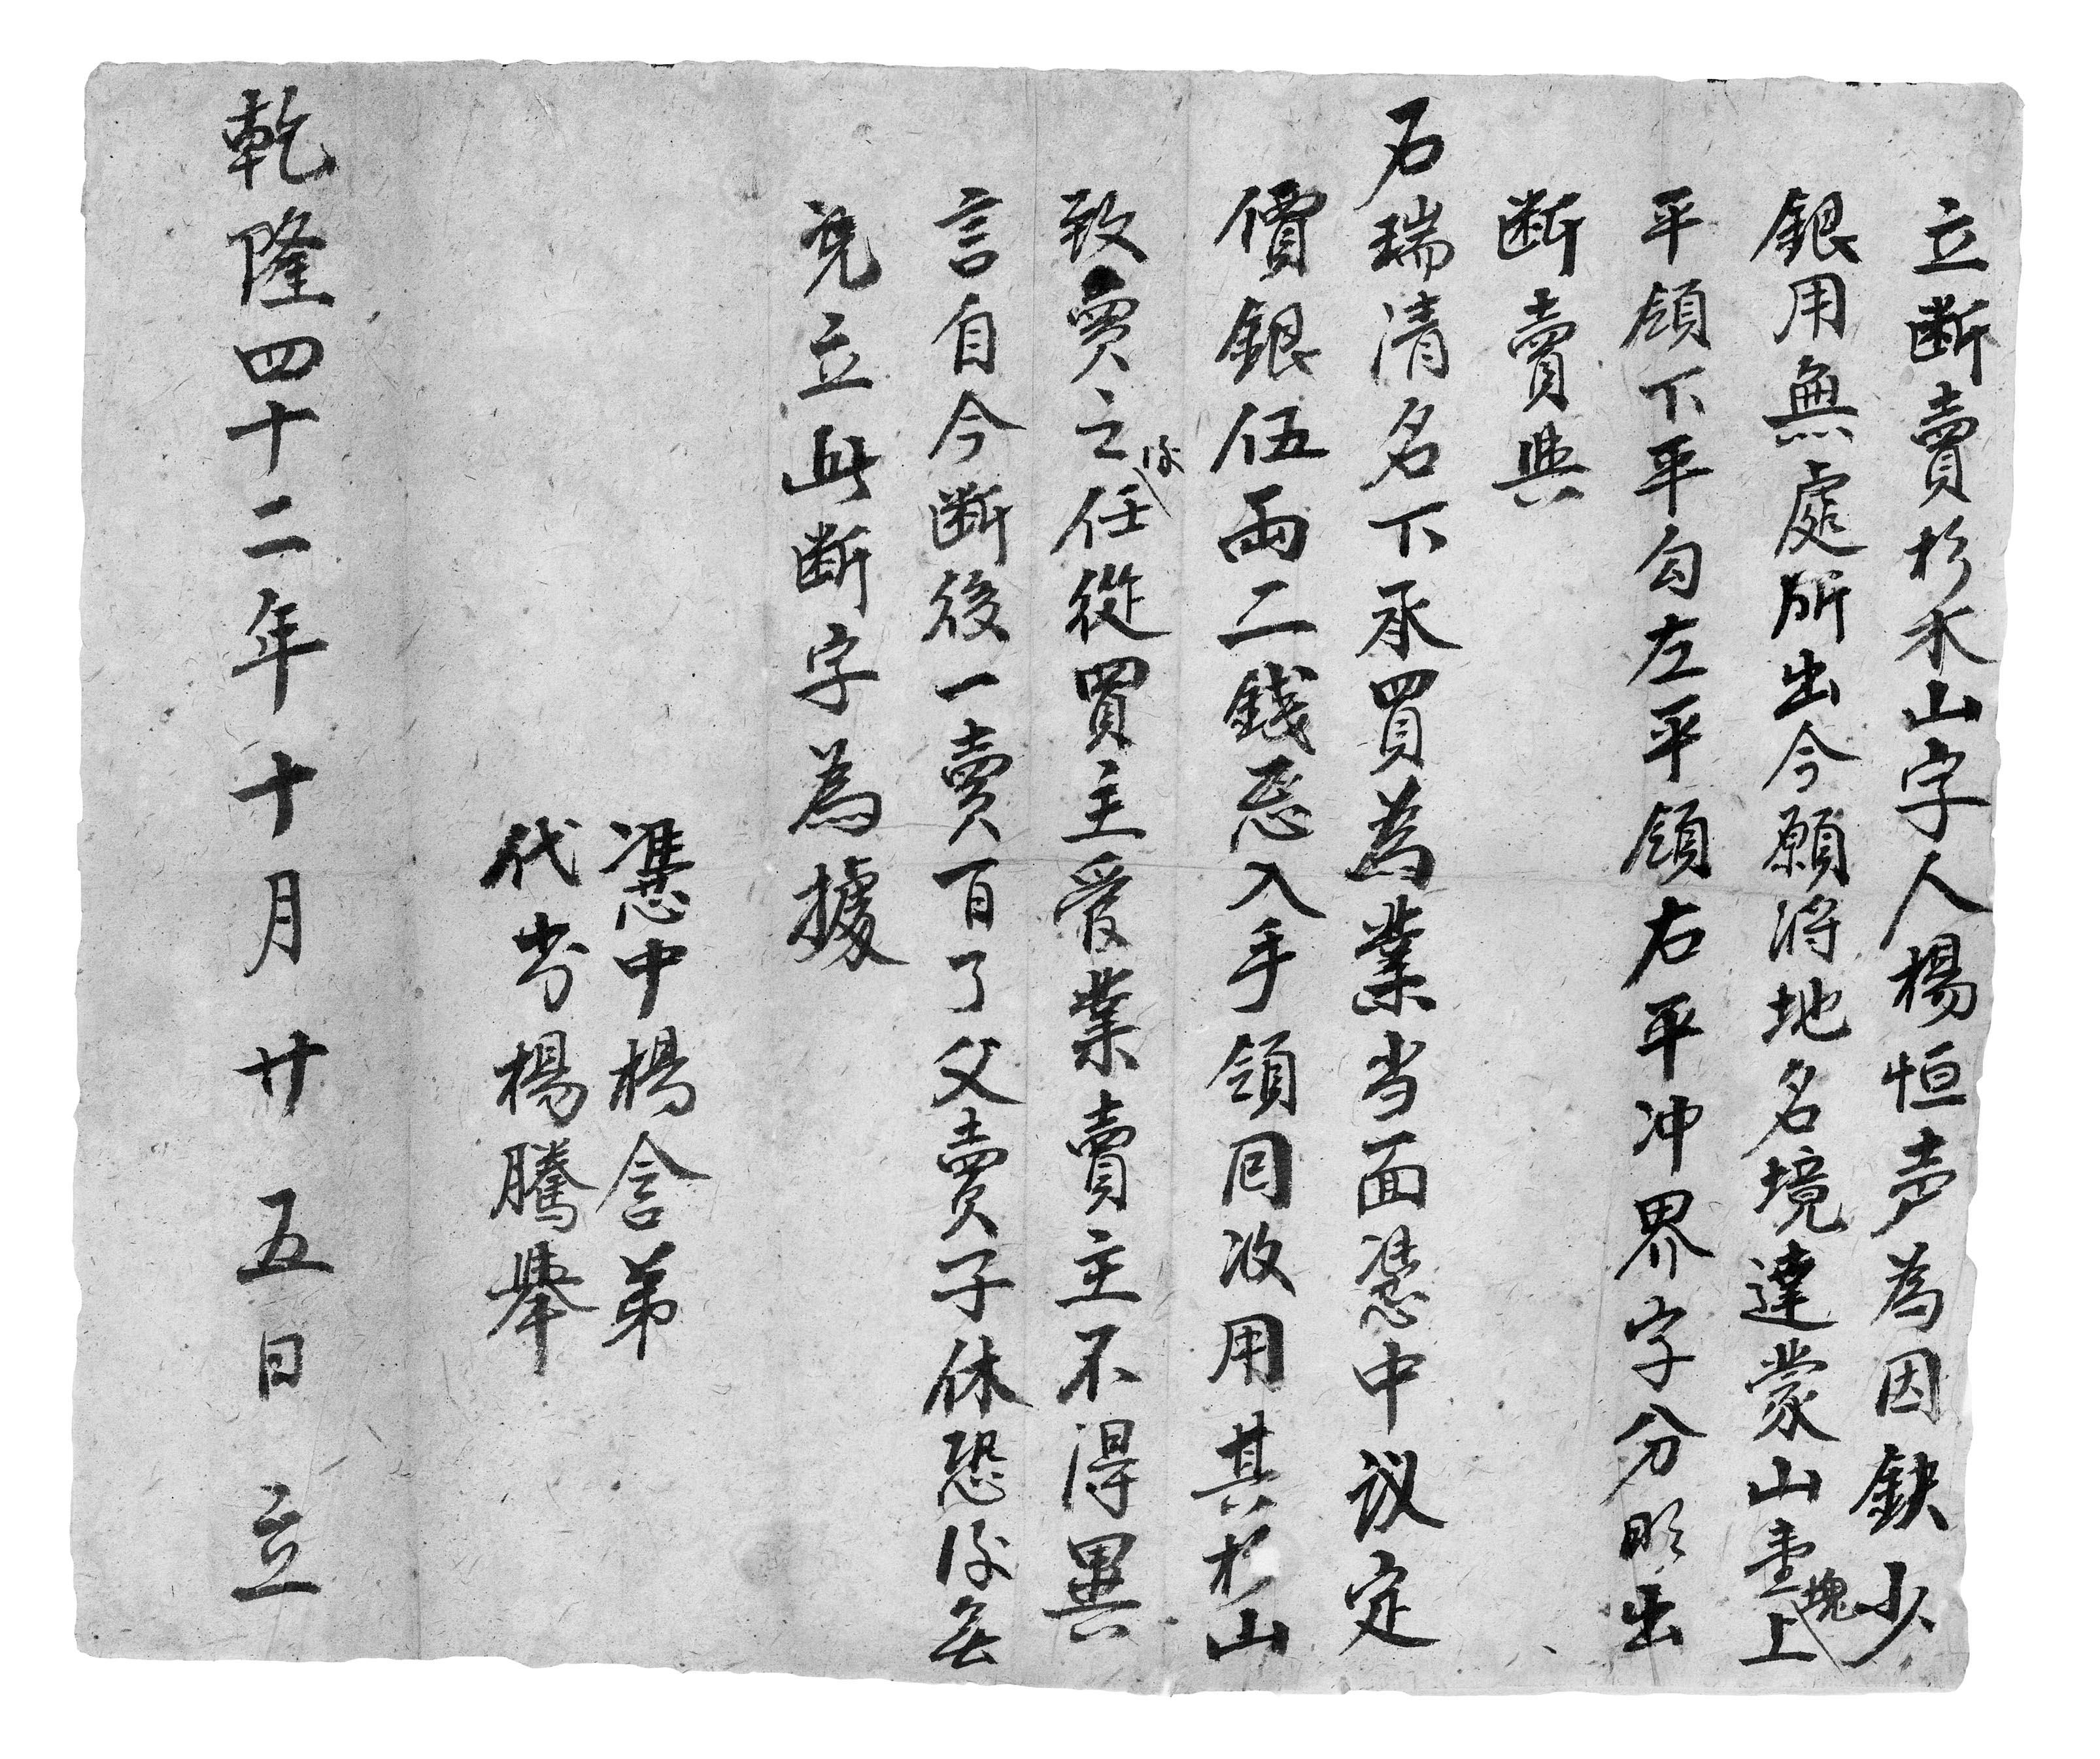 立断賣杉木山字人楊恒声為因缺少
銀用無處所出今願将地名境達蒙山壹塊上
平領下平勾左平領右平冲界字分明出
断賣與
石瑞清名下承買為業当面慿中议定
價銀伍両二錢悉入手領回收用其杉山
致賣之後任從買主受業賣主不得異
言自今断後一賣百了父賣子休恐後無
凭立此断字為據
慿中楊含弟
代书楊騰舉
乾隆四十二年十月廿五日立